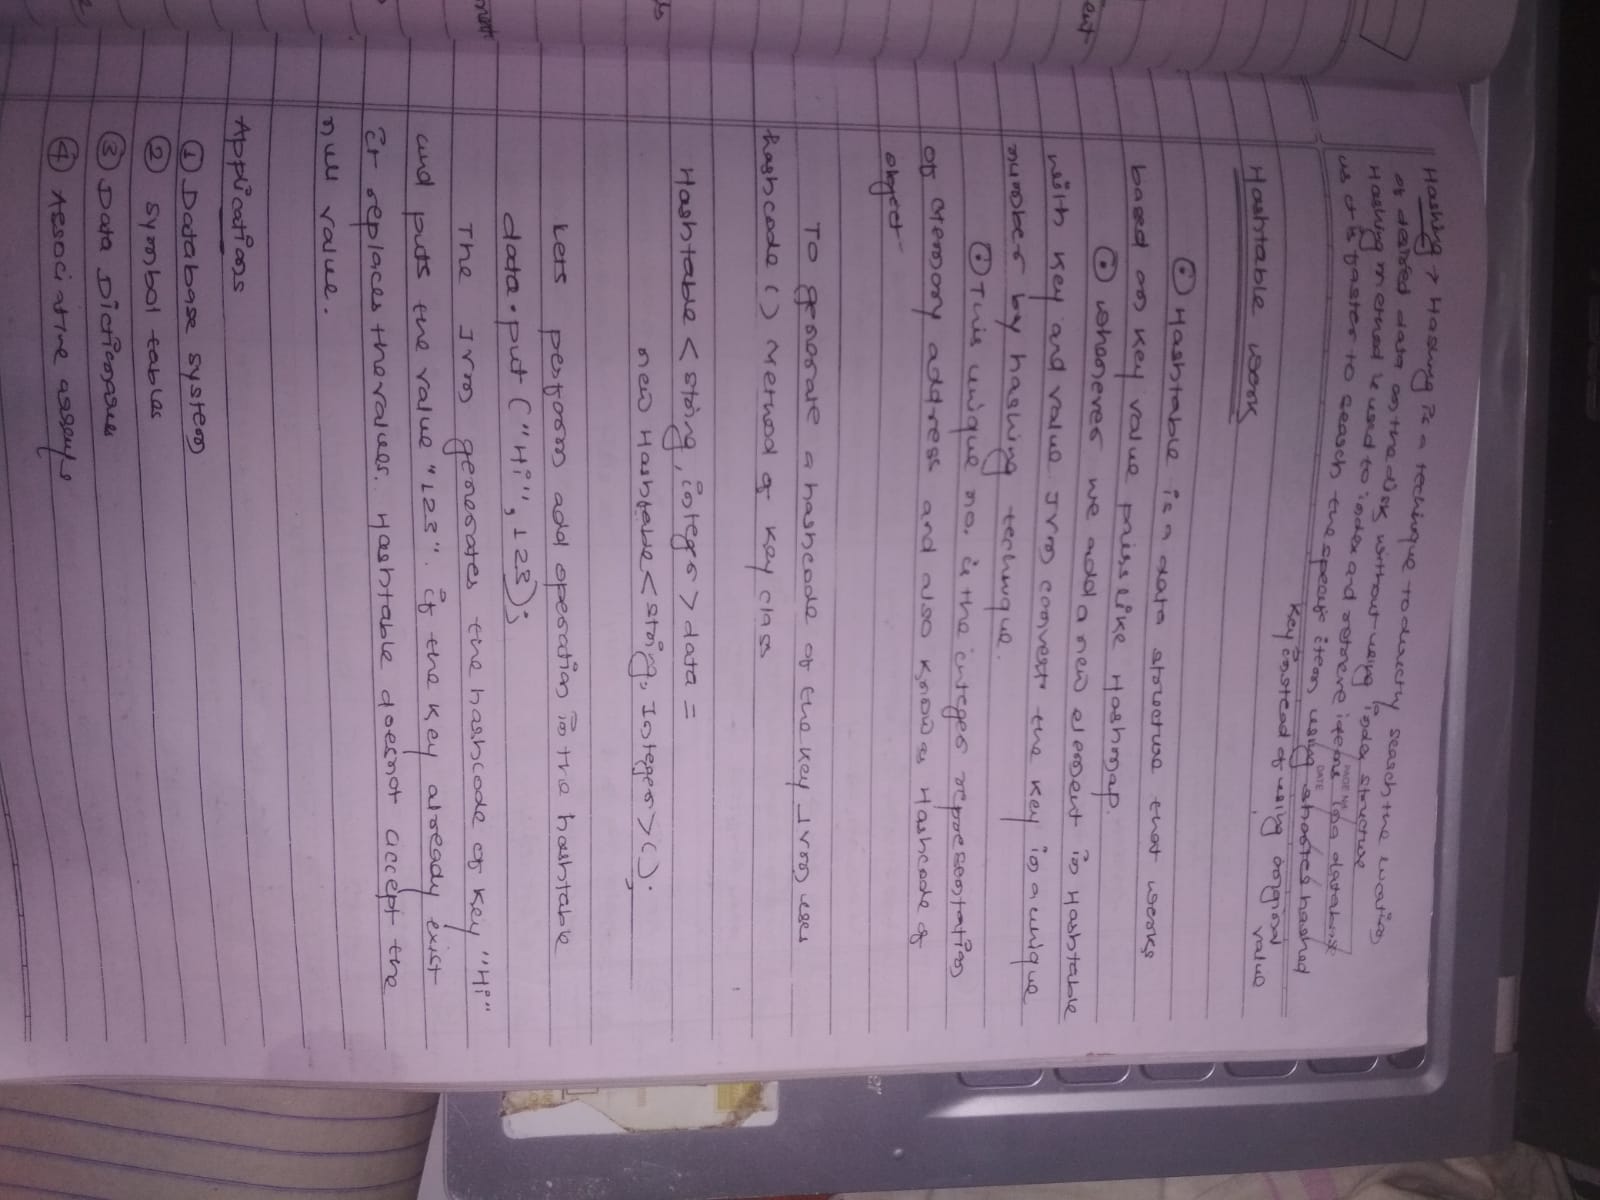 Hashing → Hashing is a technique to directly search the location
of desired data on the disk without using index structure
Hashing method is used to index and retrieve items in a database
as it is faster to search the specific item using shorter hashed
key instead of using original value
PAGE No.
DATE
Hashtable work
⊙ Hashtable is a data structure that works
based on key value pairs like Hashmap.
⊙ whenever we add a new element in Hashtable
with key and value JVM convert the key in a unique
number by hashing technique.
⊙ This unique no. is the integer representation
of memory address and also known as Hashcode of
object
To generate a hashcode of the key JVM uses
hashcode () method of key class
Hashtable < string, integer > data =
new Hashtable < string, Integer > ();
Lets perform add operation in the hashtable
data.put ("Hi", 123);
The JVM generates the hashcode of key "Hi"
and puts the value "123". if the key already exist
it replaces the values. Hashtable doesnot accept the
null value.
Applications
① Database system
② symbol tables
③ Data Dictionaries
④ Associative arrays